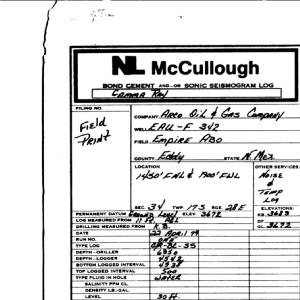 NL McCullough
BOND CEMENT AND-OR SONIC SEISMOGRAM LOG
Gamma Ray
FILING NO.
Field
Print
COMPANY Arco Oil & Gas Company
WELL EAU-F 342
FIELD Empire ABO
COUNTY Eddy STATE N. Mex
LOCATION OTHER SERVICES:
1450' FNL & 1900' FWL
Noise
&
Temp
Log
SEC. 34 TWP. 17-S RGE. 28E
ELEVATIONS:
PERMANENT DATUM Ground Level ELEV. 3672 KB. 3683
LOG MEASURED FROM
DRILLING MEASURED FROM K.B.
DATE 22 April 79
RUN NO. One
TYPE LOG
DEPTH-DRILLER
DEPTH-LOGGER
BOTTOM LOGGED INTERVAL
TOP LOGGED INTERVAL 500
TYPE FLUID IN HOLE Water
SALINITY PPM CL.
DENSITY LB./GAL.
LEVEL 30 ft.